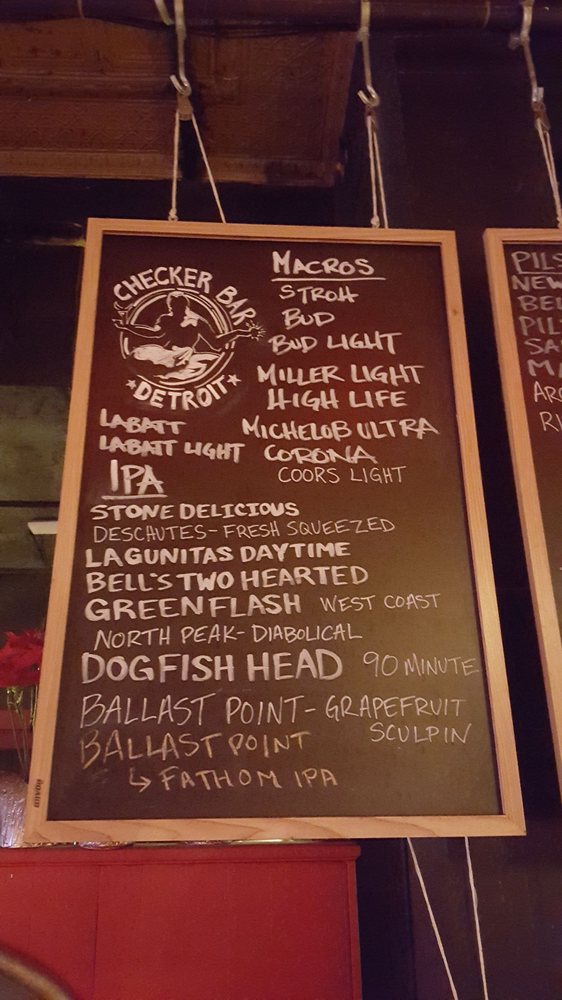 CHECKER BAR
★DETROIT★
MACROS
STROH
BUD
BUD LIGHT
MILLER LIGHT
HIGH LIFE
MICHELOB ULTRA
CORONA
COORS LIGHT
LABATT
LABATT LIGHT
IPA
STONE DELICIOUS
DESCHUTES-FRESH SQUEEZED
LAGUNITAS DAYTIME
BELL'S TWO HEARTED
GREEN FLASH WEST COAST
NORTH PEAK-DIABOLICAL
DOGFISH HEAD 90 MINUTE
BALLAST POINT-GRAPEFRUIT
SCULPIN
BALLAST POINT
↳ FATHOM IPA
PILS
NEW
BEL
PIL
SA
MA
ARC
RI